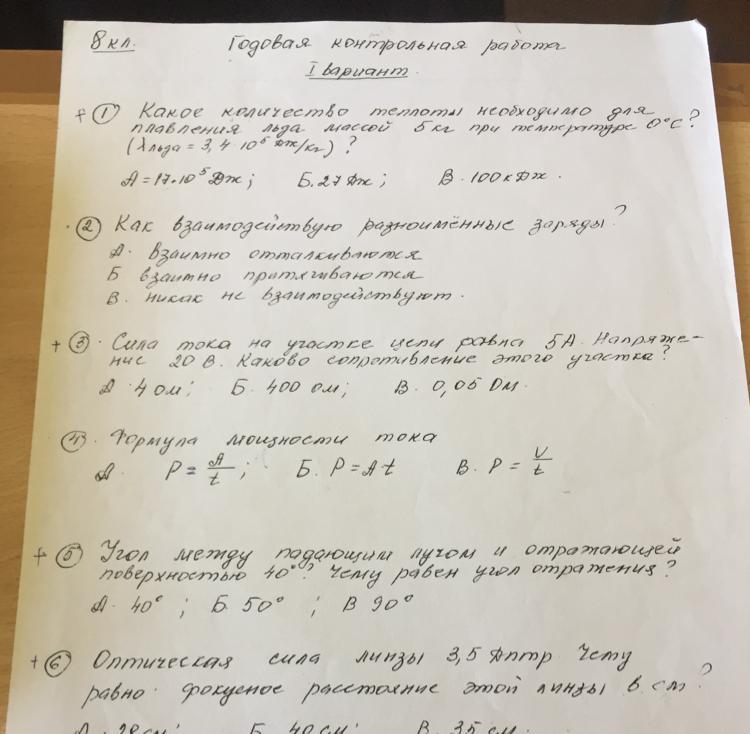 8 кл. Годовая контрольная работа
I вариант.
+ ① Какое количество теплоты необходимо для
плавления льда массой 5 кг при температуре 0°С?
(λльда = 3,4·10⁵ Дж/кг) ?
А = 17·10⁵ Дж; Б. 27 Дж; В. 100 кДж.
② Как взаимодействую разноимённые заряды?
А. Взаимно отталкиваются
Б взаимно притягиваются
В. никак не взаимодействуют.
+ ③. Сила тока на участке цепи равна 5А. Напряже-
ние 20 В. Каково сопротивление этого участка?
А. 4 ом; Б. 400 ом; В. 0,05 Ом.
④. Формула мощности тока
А. P = A/t ; Б. P = At В. P = U/t
+ ⑤ Угол между падающим лучом и отражающей
поверхностью 40°? Чему равен угол отражения?
А. 40° ; Б 50° ; В 90°
+ ⑥ Оптическая сила линзы 3,5 Дптр Чему
равно фокусное расстояние этой линзы в см?
А. 28 см; Б. 40 см; В. 35 см.